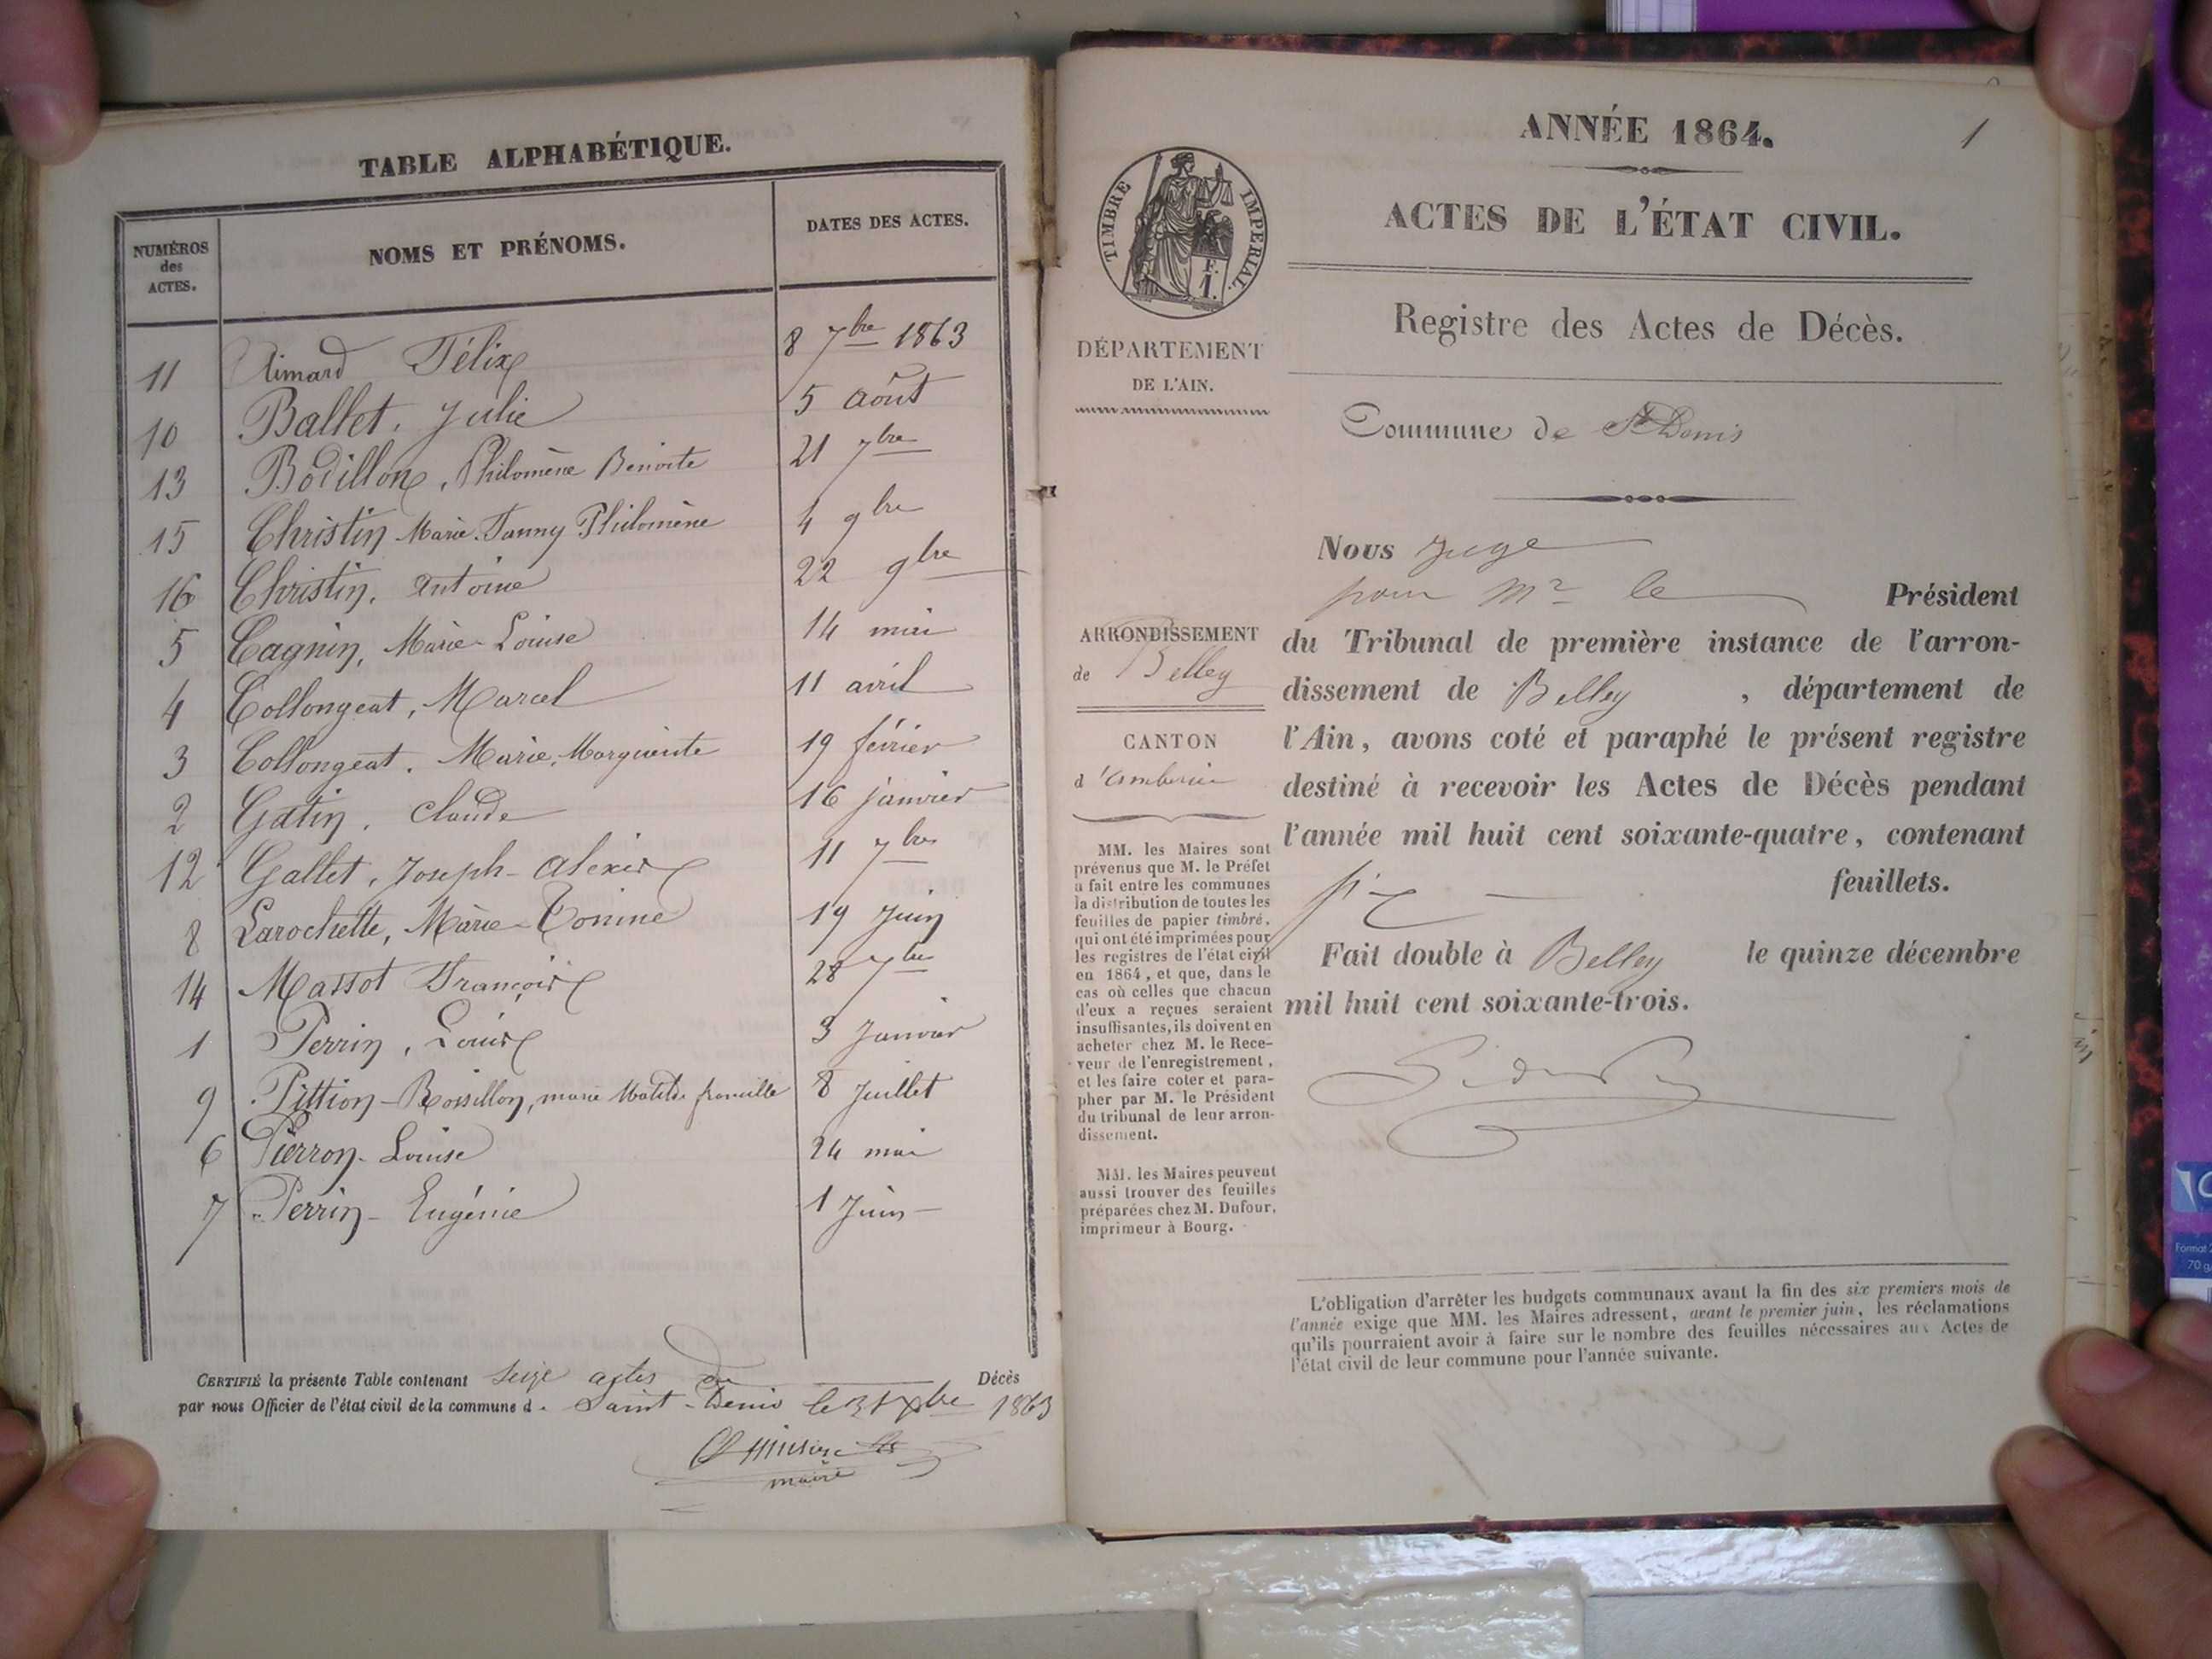 TABLE ALPHABÉTIQUE.
NUMÉROS des ACTES. NOMS ET PRÉNOMS. DATES DES ACTES.
11 Aimard Félix 8 7bre 1863
10 Ballet, Julie 5 août
13 Bodillon, Philomène Benoite 21 7bre
15 Christin Marie Fanny Philomène 4 9bre
16 Christin, Antoine 22 9bre
5 Cagnin, Marie-Louise 14 mai
4 Collongeat, Marcel 11 avril
3 Collongeat. Marie, Marguerite 19 février
2 Gatin, Claude 16 janvier
12 Gallet, Joseph-Alexis 11 7bre
8 Larochette, Marie-Tonine 19 Juin
14 Massot François 28 7bre
1 Perrin, Louis 3 Janvier
9 Pittion-Rossillon, marie 8 Juillet
6 Pierron-Louise 24 mai
7 Perrin-Eugénie 1 Juin
CERTIFIÉ la présente Table contenant seize actes de Décès
par nous Officier de l'état civil de la commune d. Saint-Denis le 31 Xbre 1863
maire
1
ANNÉE 1864.
ACTES DE L'ÉTAT CIVIL.
Registre des Actes de Décès.
TIMBRE IMPÉRIAL.
F.
1.
DÉPARTEMENT
DE L'AIN.
Commune de St Denis
Nous Juge
pour Mr le Président
du Tribunal de première instance de l'arron-
dissement de Belley, département de
l'Ain, avons coté et paraphé le présent registre
destiné à recevoir les Actes de Décès pendant
l'année mil huit cent soixante-quatre, contenant
six feuillets.
Fait double à Belley le quinze décembre
mil huit cent soixante-trois.
ARRONDISSEMENT
de Belley
CANTON
d'ambérieu
MM. les Maires sont
prévenus que M. le Préfet
a fait entre les communes
la distribution de toutes les
feuilles de papier timbré,
qui ont été imprimées pour
les registres de l'état civil
en 1864, et que, dans le
cas où celles que chacun
d'eux a reçues seraient
insuffisantes, ils doivent en
acheter chez M. le Rece-
veur de l'enregistrement,
et les faire coter et para-
pher par M. le Président
du tribunal de leur arron-
dissement.
MM. les Maires peuvent
aussi trouver des feuilles
préparées chez M. Dufour,
imprimeur à Bourg.
L'obligation d'arrêter les budgets communaux avant la fin des six premiers mois de
l'année exige que MM. les Maires adressent, avant le premier juin, les réclamations
qu'ils pourraient avoir à faire sur le nombre des feuilles nécessaires aux Actes de
l'état civil de leur commune pour l'année suivante.
Format
70 g